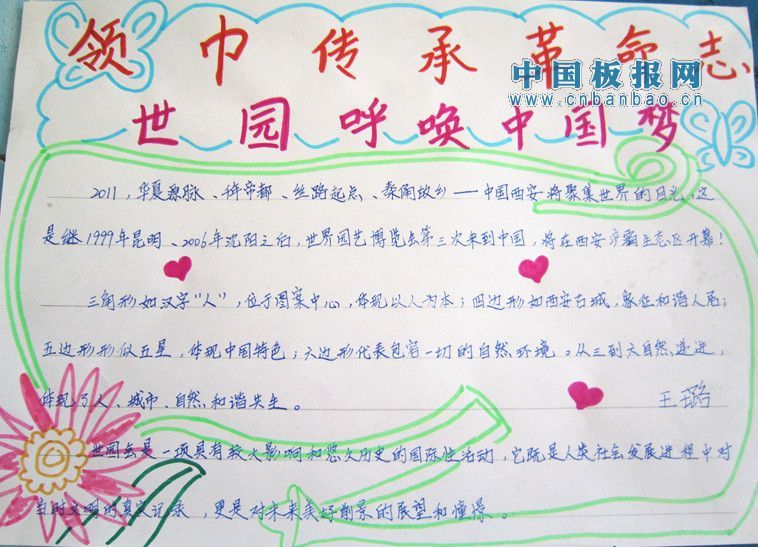 领巾传承革命志
中国板报网
www.cnbanbao.cn
世园呼唤中国梦
2011，华夏源脉、帝都、丝路起点、秦俑故乡——中国西安将聚集世界的目光。这
是继1999年昆明、2006年沈阳之后，世界园艺博览会第三次来到中国，将在西安浐灞生态区开幕！
三角形如汉字“人”，位于图案中心，体现以人为本；四边形如西安古城，象征和谐人居；
五边形形似五星，体现中国特色；六边形代表包容一切的自然环境。从三到六自然递进，
体现了人、城市、自然和谐共生。
王璐
世园会是一项具有较大影响和悠久历史的国际性活动，它既是人类社会发展进程中对
当时文明的真实记录，更是对未来美好前景的展望和憧憬。